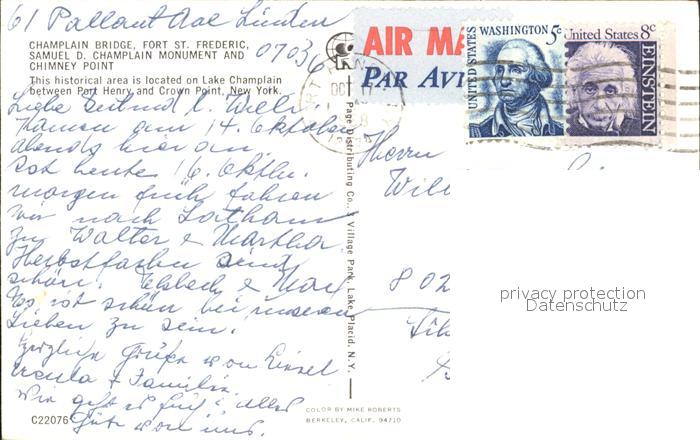 61 Pallant Ave Linden
07036
CHAMPLAIN BRIDGE, FORT ST. FREDERIC,
SAMUEL D. CHAMPLAIN MONUMENT AND
CHIMNEY POINT
This historical area is located on Lake Champlain
between Port Henry and Crown Point, New York.
Liebe Gertrud & Willi
Kamen am 14. Oktober
abends hier an.
Ist heute 16. Oktbr.
morgen früh fahren
wir nach Latham
zu Walter & Martha.
Herbstfarben sind
schön. &
Es ist schön bei unseren
Lieben zu sein.
Herzliche Grüße von
Ursula & Familie
Wie geht es Euch? alles
Gute von uns.
C22076
Page Distributing Co., Village Park, Lake Placid, N. Y.
COLOR BY MIKE ROBERTS
BERKELEY, CALIF. 94710
AIR MA
PAR AVI
UNITED STATES
WASHINGTON 5c
United States 8c
EINSTEIN
OCT
Herrn
Will
802
privacy protection
Datenschutz